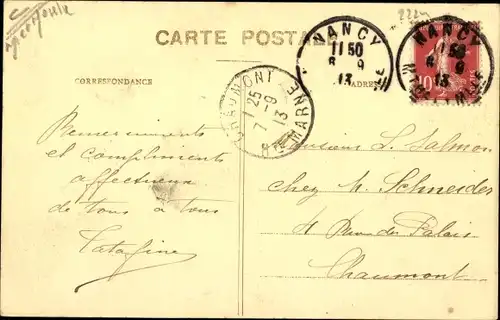 CARTE POSTALE
CORRESPONDANCE
NANCY
11 50
8 9
13
NANCY
50
8 9
13
10
CHAUMONT
1 25
7 - 9
13
Hte MARNE
Remerciments
et compliments
affectueux
de tous à tous
Monsieur L. Salmon
chez M. Schneider
4 du Palais
Chaumont